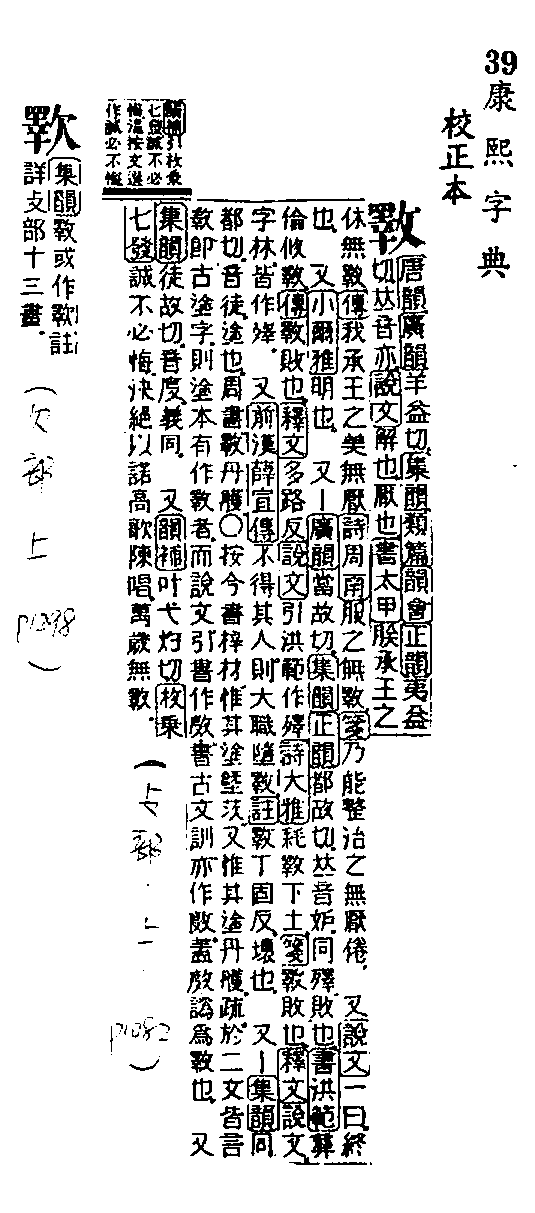 39
康熙字典
校正本
斁
唐韻廣韻羊益切集韻類篇韻會正韻夷益
切𠀤音亦說文解也厭也書太甲朕承王之
休無斁傳我承王之美無厭詩周南服之無斁箋乃能整治之無厭倦又說文一曰終
也又小爾雅明也又丨廣韻當故切集韻正韻都故切𠀤音妒同殬敗也書洪範彝
倫攸斁傳斁敗也釋文多路反說文引洪範作殬詩大雅耗斁下土箋斁敗也釋文說文
字林皆作殬又前漢薛宣傳不得其人則大職隳斁註斁丁固反壞也又丨集韻同
都切音徒塗也周書斁丹雘○按今書梓材惟其塗墍茨又惟其塗丹雘疏於二文皆言
斁卽古塗字則塗本有作斁者而說文引書作𢾖書古文訓亦作𢾖蓋𢾖譌爲斁也又
集韻徒故切音度義同又韻補叶弋灼切枚乘
七發誠不必悔決絕以諾高歌陳唱萬歲無斁
韻補引枚乘
七發誠不必
悔溫按文選
作誠必不悔
(攴部.上
p1082)
集韻斁或作㪅註
詳攴部十三畫
(欠部上
p1098)